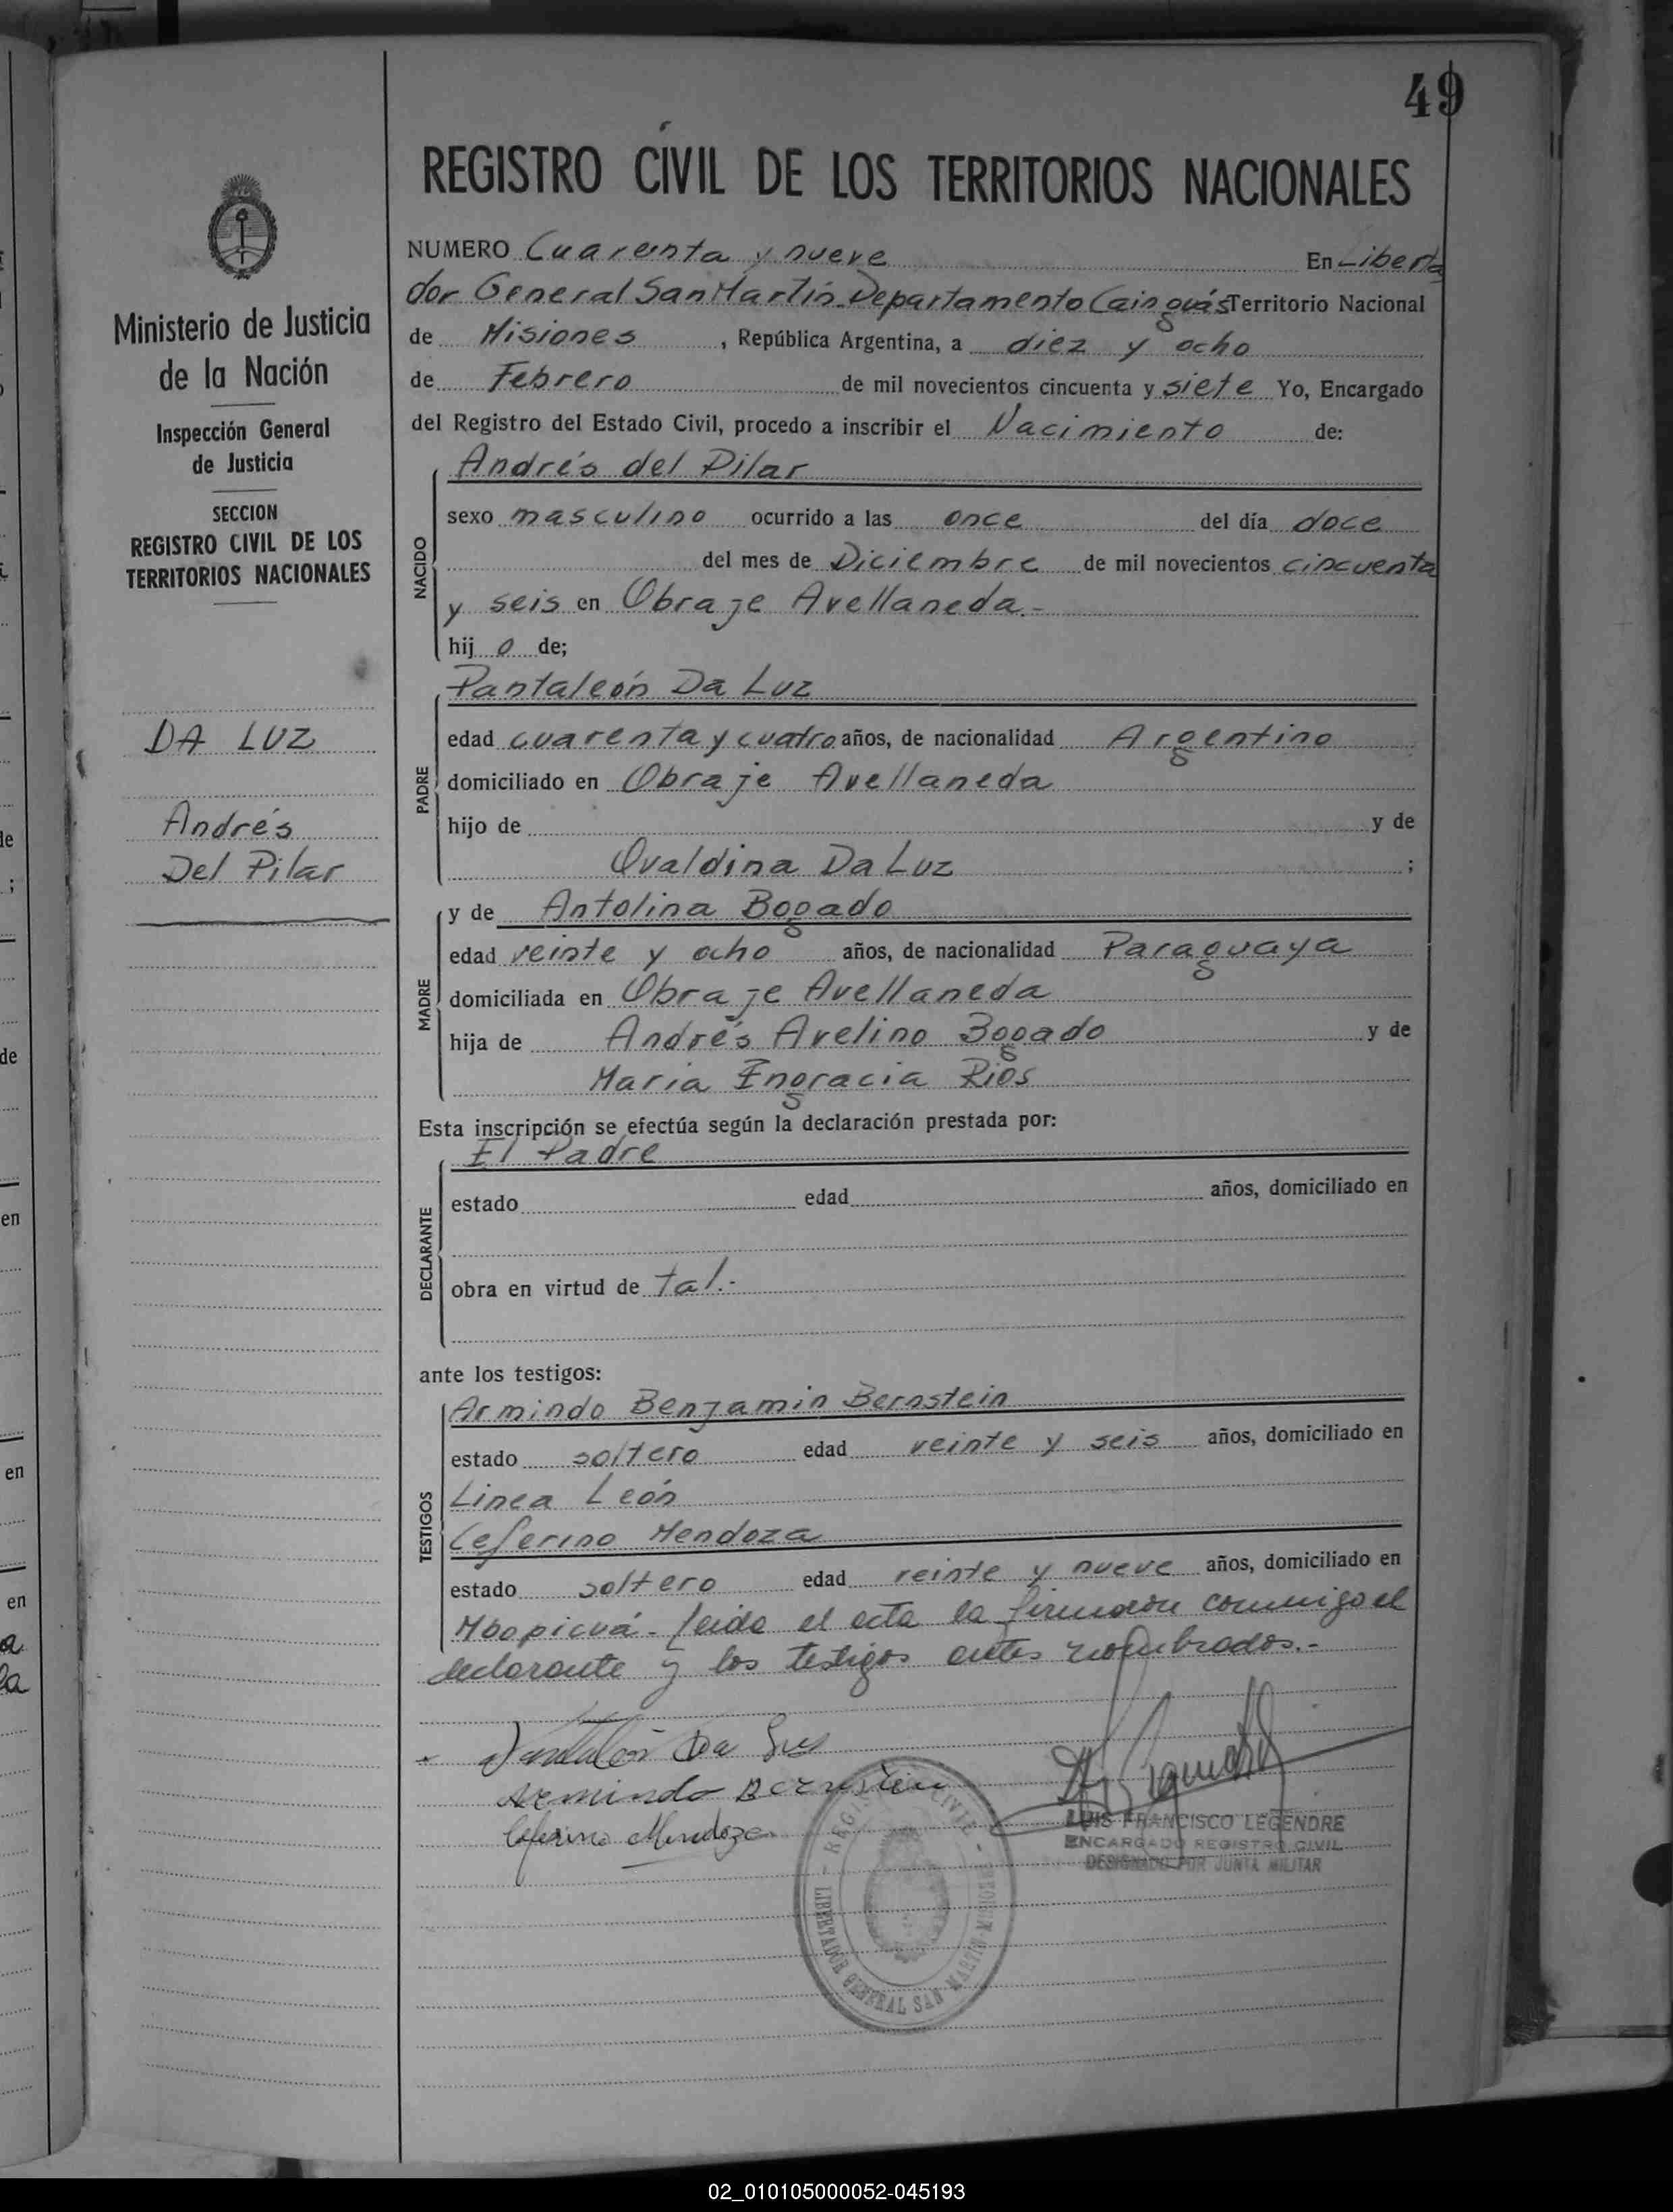 49
REGISTRO CIVIL DE LOS TERRITORIOS NACIONALES
Ministerio de Justicia
de la Nación
Inspección General
de Justicia
SECCION
REGISTRO CIVIL DE LOS
TERRITORIOS NACIONALES
DA LUZ
Andrés
Del Pilar
NUMERO Cuarenta y nueve En Liberta
dor General San Martín-Departamento Cainguás Territorio Nacional
de Misiones, República Argentina, a diez y ocho
de Febrero de mil novecientos cincuenta y siete Yo, Encargado
del Registro del Estado Civil, procedo a inscribir el Nacimiento de:
NACIDO
Andrés del Pilar
sexo masculino ocurrido a las once del día doce
del mes de Diciembre de mil novecientos cincuenta
y seis en Obraje Avellaneda.-
hij o de;
PADRE
Pantaleón Da Luz
edad cuarenta y cuatro años, de nacionalidad Argentino
domiciliado en Obraje Avellaneda
hijo de y de
Ovaldina Da Luz ;
MADRE
y de Antolina Bogado
edad veinte y ocho años, de nacionalidad Paraguaya
domiciliada en Obraje Avellaneda
hija de Andrés Avelino Bogado y de
Maria Engracia Rios
Esta inscripción se efectúa según la declaración prestada por:
DECLARANTE
El Padre
estado edad años, domiciliado en
obra en virtud de tal.-
ante los testigos:
TESTIGOS
Armindo Benjamin Bernstein
estado soltero edad veinte y seis años, domiciliado en
Linea León
Ceferino Mendoza
estado soltero edad veinte y nueve años, domiciliado en
Mbopicuá- leida el acta la firmaron conmigo el
declarante y los testigos antes nombrados.-
Pantaleón Da Luz
Armindo Bernstein
Ceferino Mendoza
LUIS FRANCISCO LEGENDRE
ENCARGADO REGISTRO CIVIL
DESIGNADO POR JUNTA MILITAR
LIBERTADOR GENERAL SAN MARTIN
02_010105000052-045193